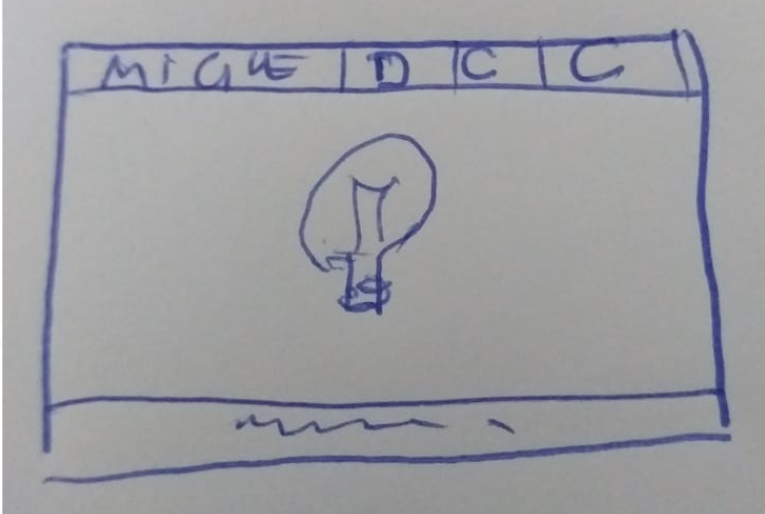 MIGUE D C C